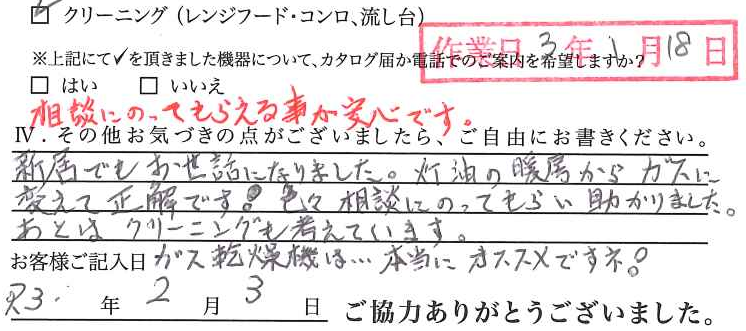 クリーニング（レンジフード・コンロ、流し台）
作業日 3年 1月18日
※上記にて✓を頂きました機器について、カタログ届か電話でのご案内を希望しますか？
□ はい □ いいえ
相談にのってもらえる事が安心です。
Ⅳ．その他お気づきの点がございましたら、ご自由にお書きください。
新居でもお世話になりました。灯油の暖房からガスに
変えて正解です！色々相談にのってもらい助かりました。
あとはクリーニングも考えています。
お客様ご記入日 ガス乾燥機は…本当にオススメですネ！
R3. 年 2 月 3 日 ご協力ありがとうございました。